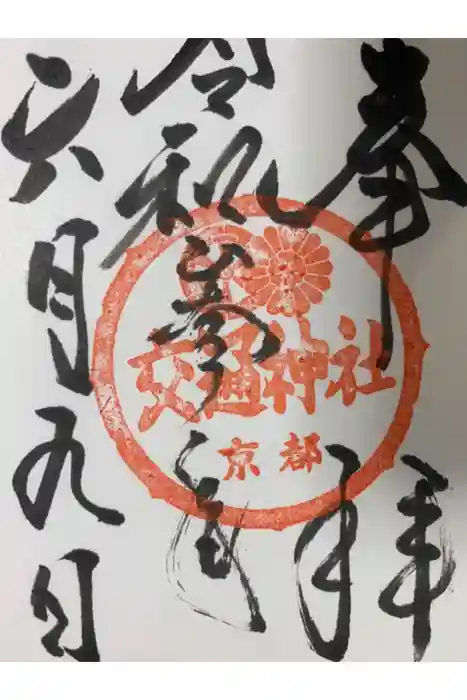 奉拝
令和六年
六月九日
交通神社
京都